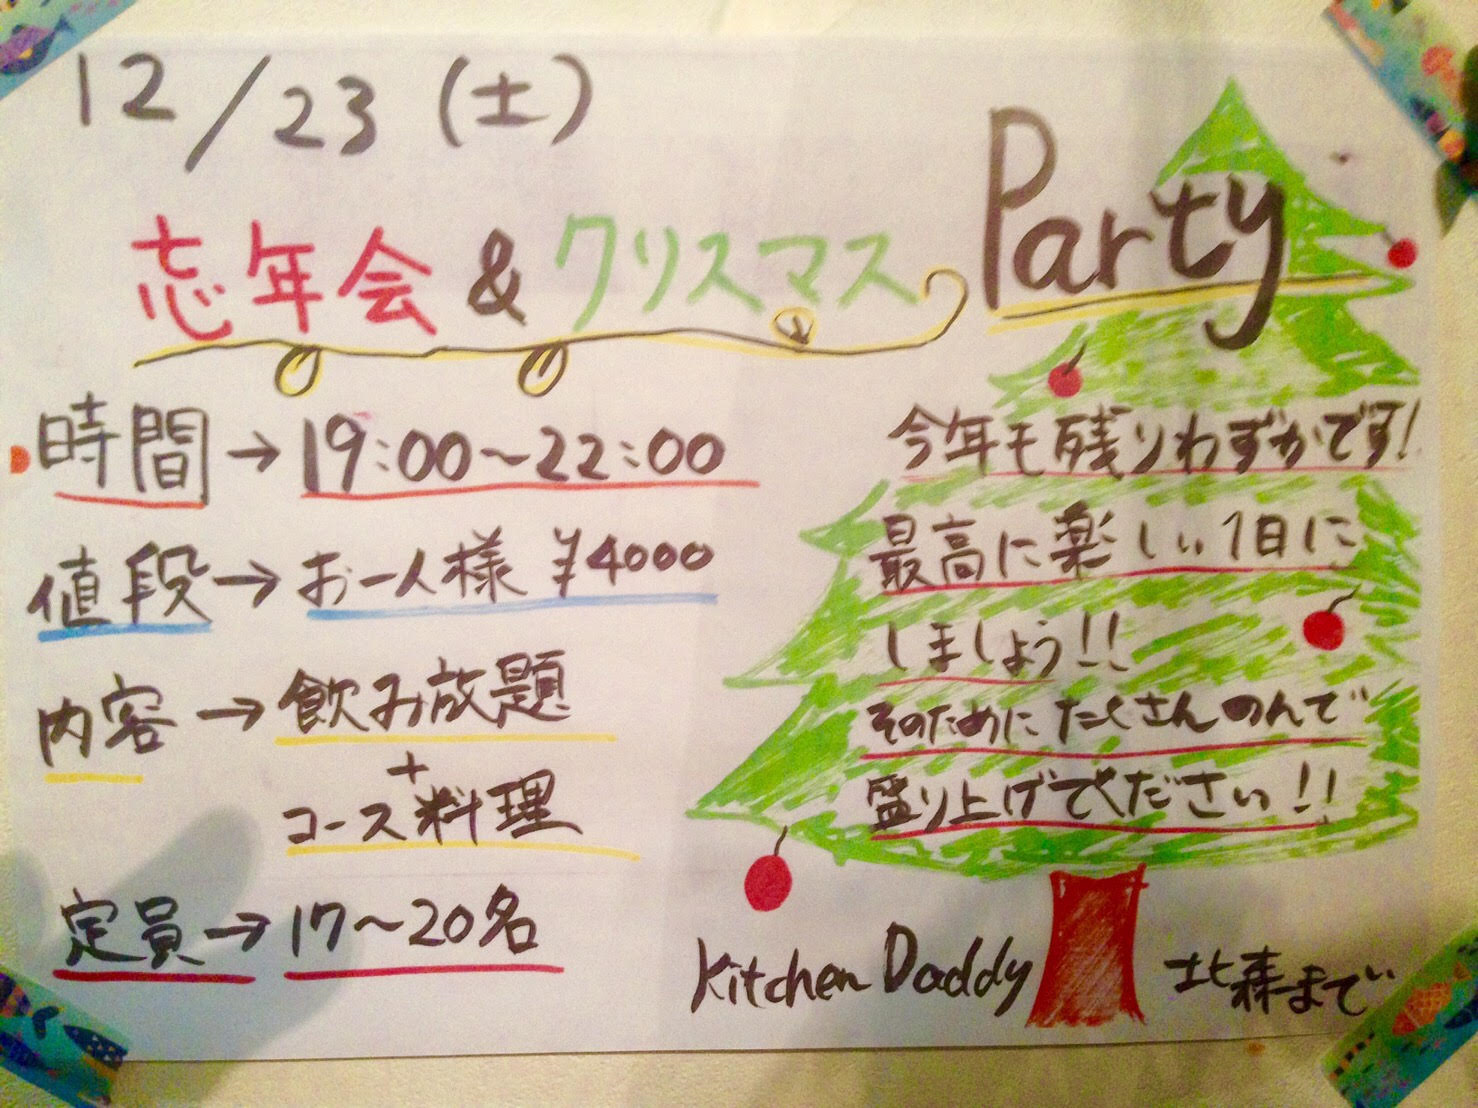 12/23(土)
忘年会&クリスマス Party
時間→19:00～22:00
値段→お一人様 ¥4000
内容→飲み放題
+
コース料理
定員→17～20名
今年も残りわずかです!
最高に楽しい1日に
しましょう!!
そのためにたくさんのんで
盛り上げてください!!
Kitchen Daddy
北森まで